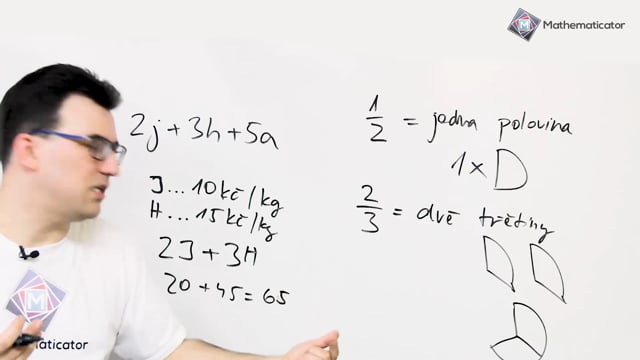 Mathematicator
2j+3h+5a
J...10kč/kg
H...15kč/kg
2J+3H
20+45=65
1/2 = jedna polovina
1x
2/3 = dvě třetiny
M
maticator